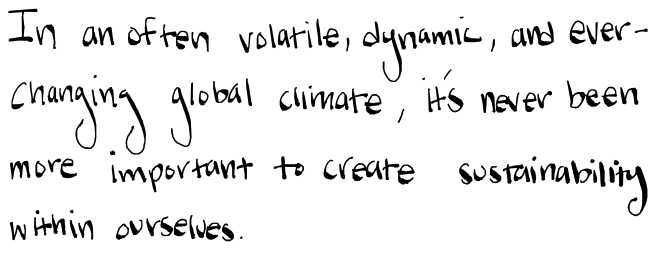 In an often volatile, dynamic, and ever-
changing global climate, it's never been
more important to create sustainability
within ourselves.